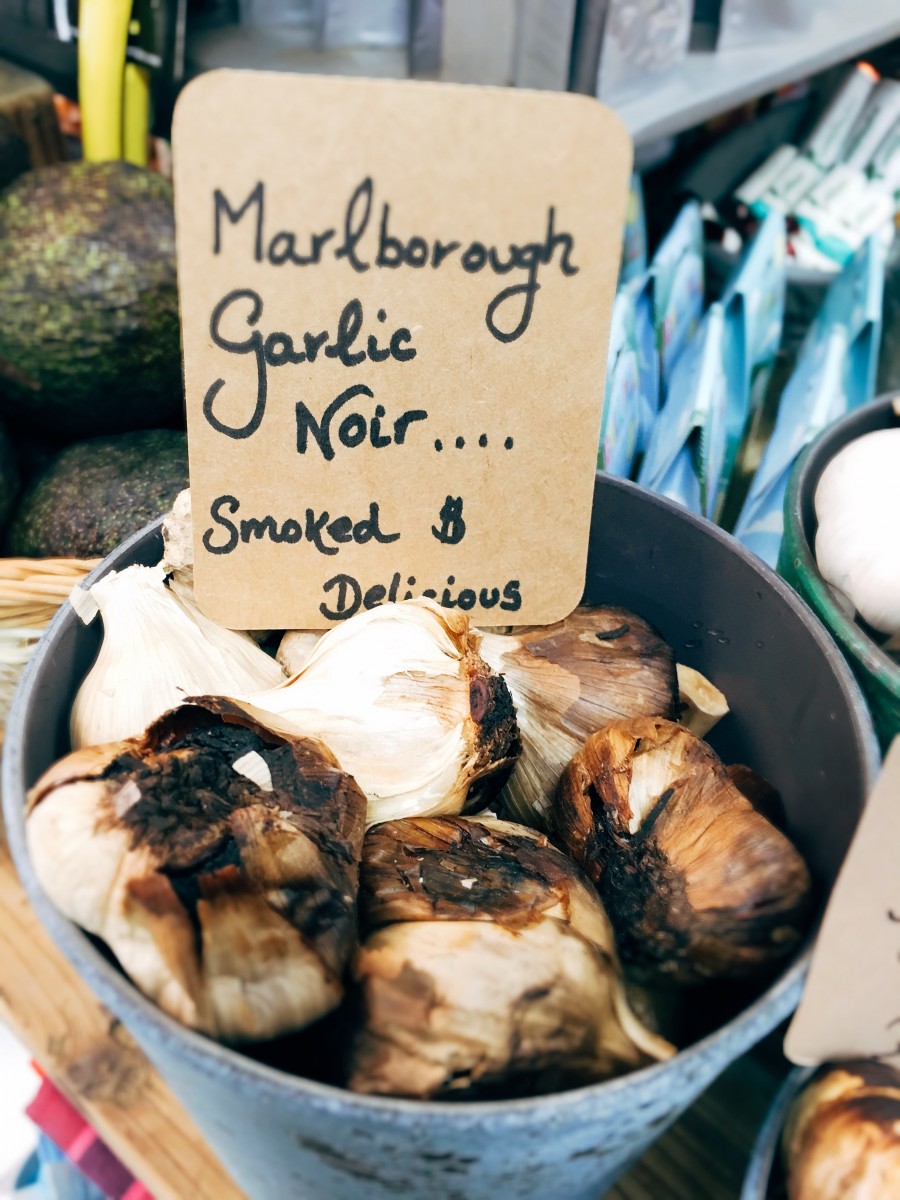 Marlborough
Garlic
Noir....
Smoked &
Delicious